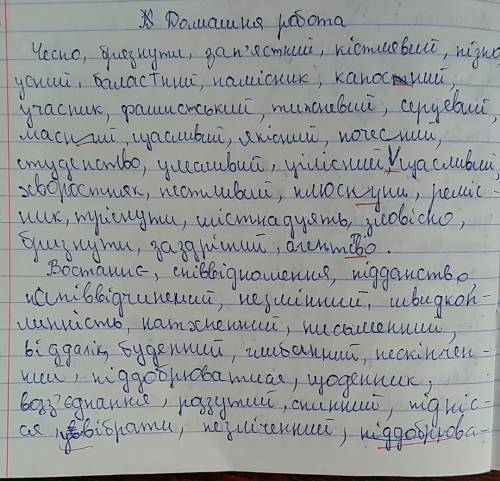 Домашня робота
Чесно, брязнути, зап'ястний, кістлявий, пізно
усний, баластний, намісник, капосний,
учасник, фашистський, тижневий, серцевий,
масний, щасливий, якісний, почесний,
студенство, улесливий, цілісний, щасливий,
хворостняк, пестливий, плюснути, реміс-
ник, тріснути, шістнадцять, зловісно,
бризнути, заздрісний, агентство.
Востаннє, співвідношення, підданство,
співвідчинений, незмінний, швидкоп-
линність, натхненний, письменний,
віддалік, буденний, нескінчен-
ний, піддобрюватися, щоденник,
возз'єднання, роззутий, спинний, підніс-
ся, ввібрати, незліченний, піддобрюва-